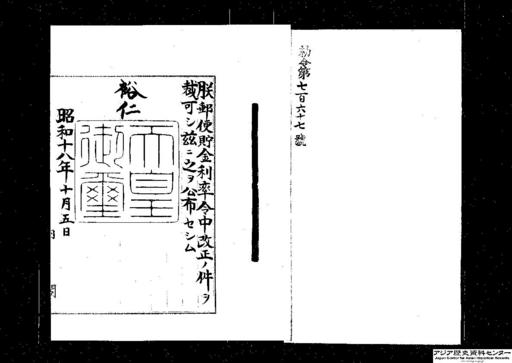 勅令第七百六十七號
朕郵便貯金利率令中改正ノ件ヲ
裁可シ玆ニ之ヲ公布セシム
裕仁
天皇御璽
昭和十八年十月五日
内閣
アジア歴史資料センター
Japan Center for Asian Historical Records